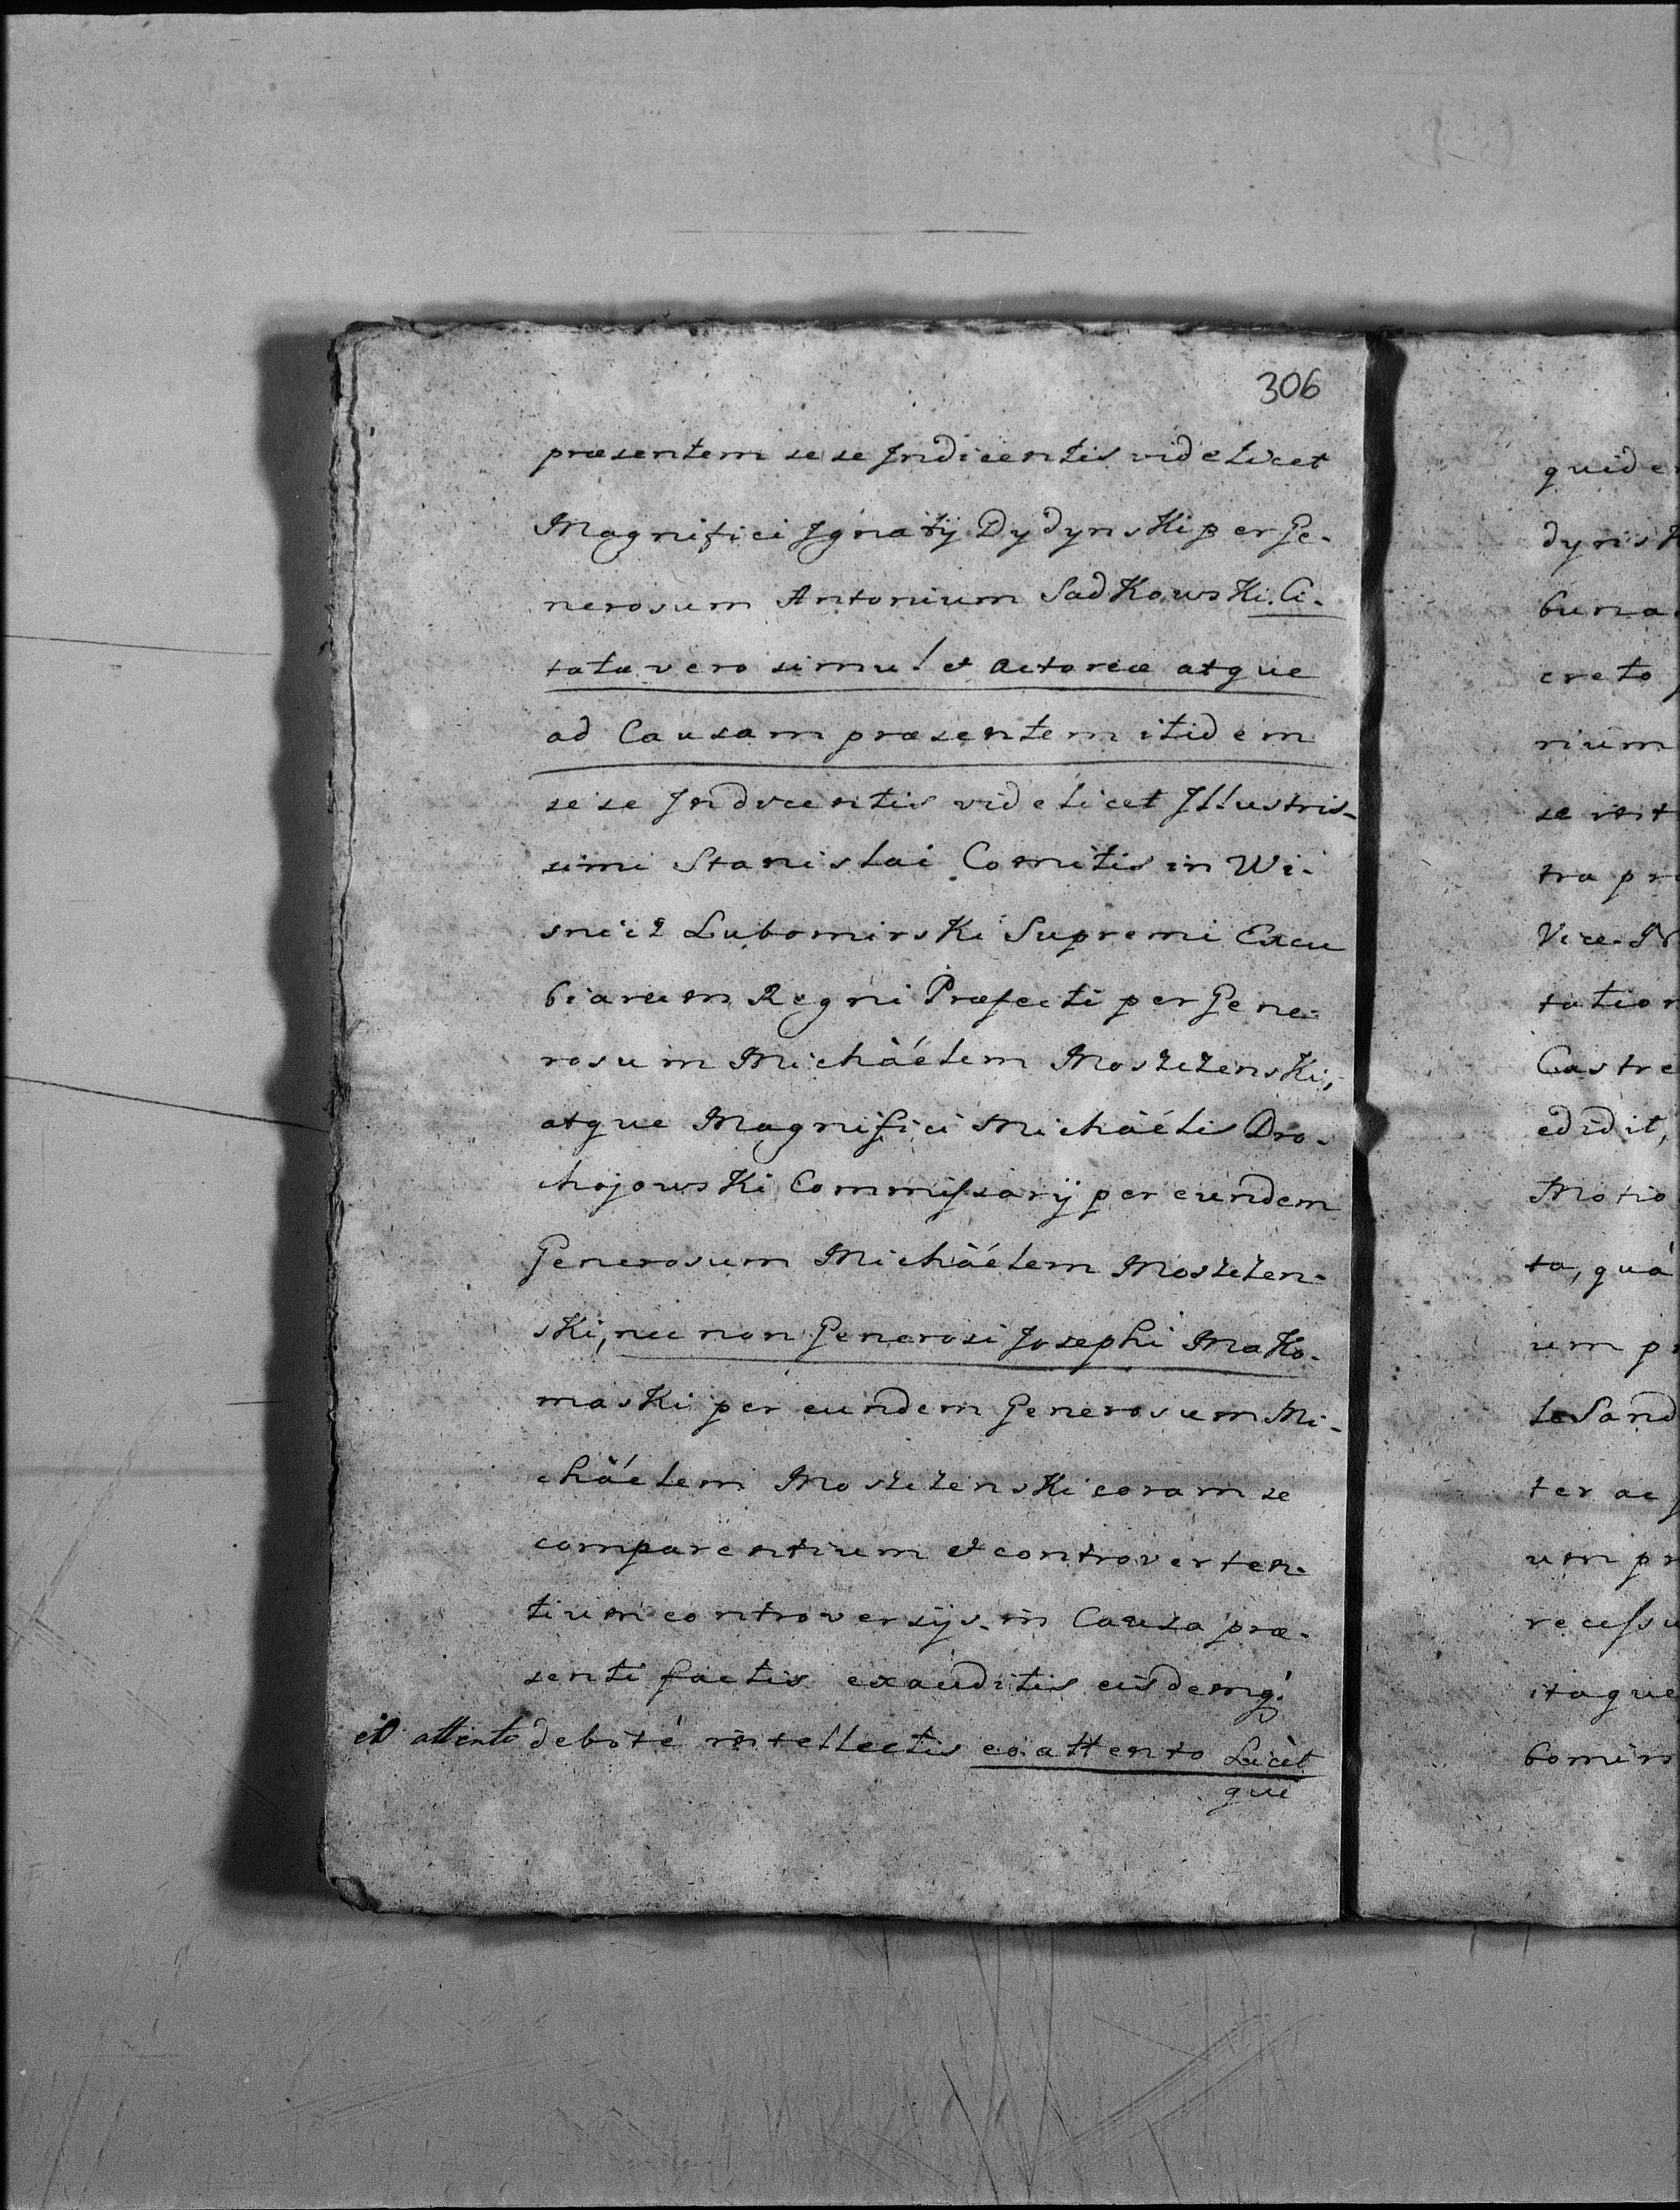 306
præsentem se se Indicentis videlicet
Magnifici Ignatij Dydynski per Ge-
nerosum Antonium Sadkowski. Ci-
tatæ vero simul et actoreæ atque
ad Causam præsentem itidem
se se Inducentis videlicet Illustris-
simi Stanislai Comitis in Wi-
snicz Lubomirski Supremi Excu
biarum Regni Præfecti per Gene-
rosum Michäélem Moszczenski,
atque Magnifici Michäélis Dro-
hojowski Commissarij per eundem
Generosum Michäélem Moszczen-
ski, nec non Generosi Josephi Mako-
maski per eundem Generosum Mi-
chäélem Moszczenski coram se
comparentium et controverten-
tium controversijs in Causa præ-
senti factis exauditis eisdemq́
debité intellectis eo attento Licét
eo attento
que
quide
dynsk
buna
creto
rium
se int
tra pr
Vice-
tation
Castre
edidit,
Motio
ta, quá
um p
le Sand
ter ac
um pr
recessu
itaque
bomirs